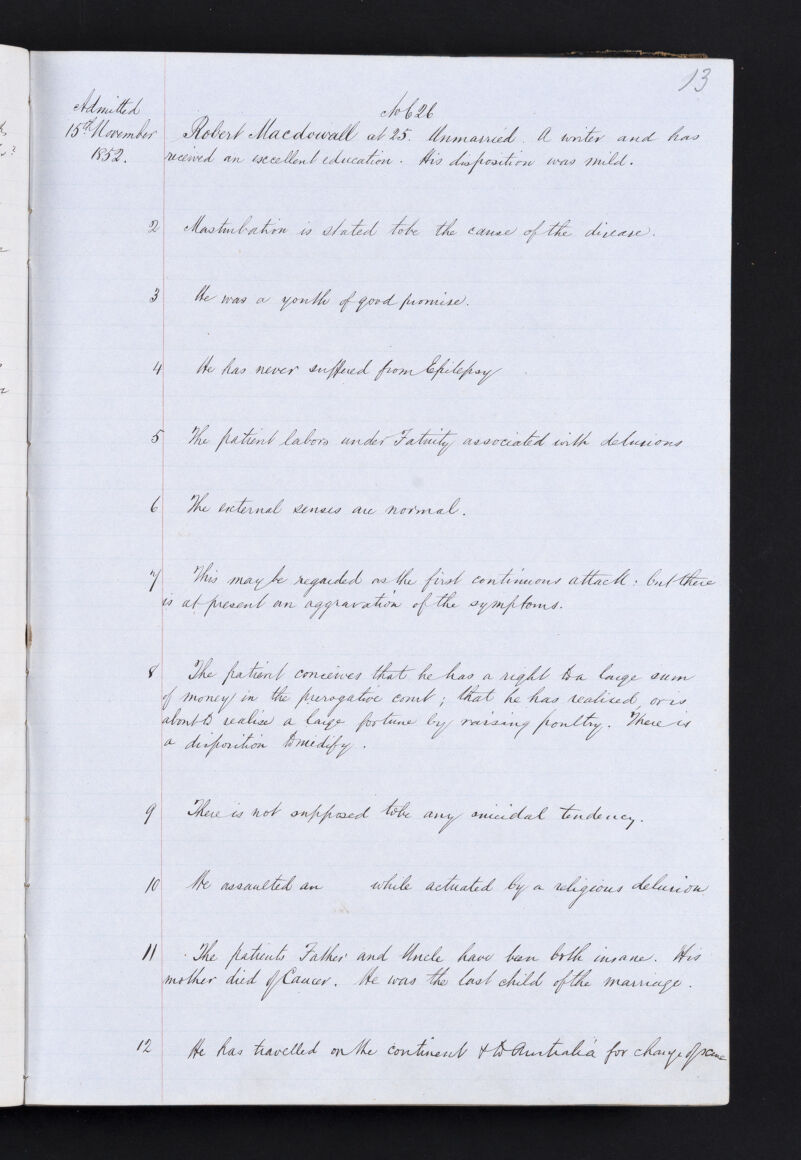 13
Admitted
15th November
1852.
No 626
Robert Macdowall at 25. Unmarried. A writer and has
received an excellent education. His disposition was mild.
2 Masturbation is stated tobe the cause of the disease.
3 He was a youth of good promise.
4 He has never suffered from Epilepsy
5 The patient labors under Fatuity associated with delusions
6 The external senses are normal.
7 This may be regarded as the first continuous attack: but there
is at present an aggravation of the symptoms.
8 The patient conceives that he has a right to a large sum
of money in the prerogative court; that he has realised, or is
about to realise a large fortune by raising poultry. There is
a disposition to
9 There is not supposed tobe any suicidal tendency.
10 He assaulted an while actuated by a religious delusion
11 The patients Father and Uncle have been both insane. His
mother died of Cancer. He was the last child of the marriage.
12 He has travelled on the continent & to Australia for change of scene